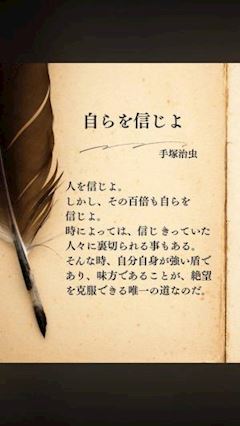 自らを信じよ
手塚治虫
人を信じよ。
しかし、その百倍も自らを
信じよ。
時によっては、信じきっていた
人々に裏切られる事もある。
そんな時、自分自身が強い盾で
あり、味方であることが、絶望
を克服できる唯一の道なのだ。